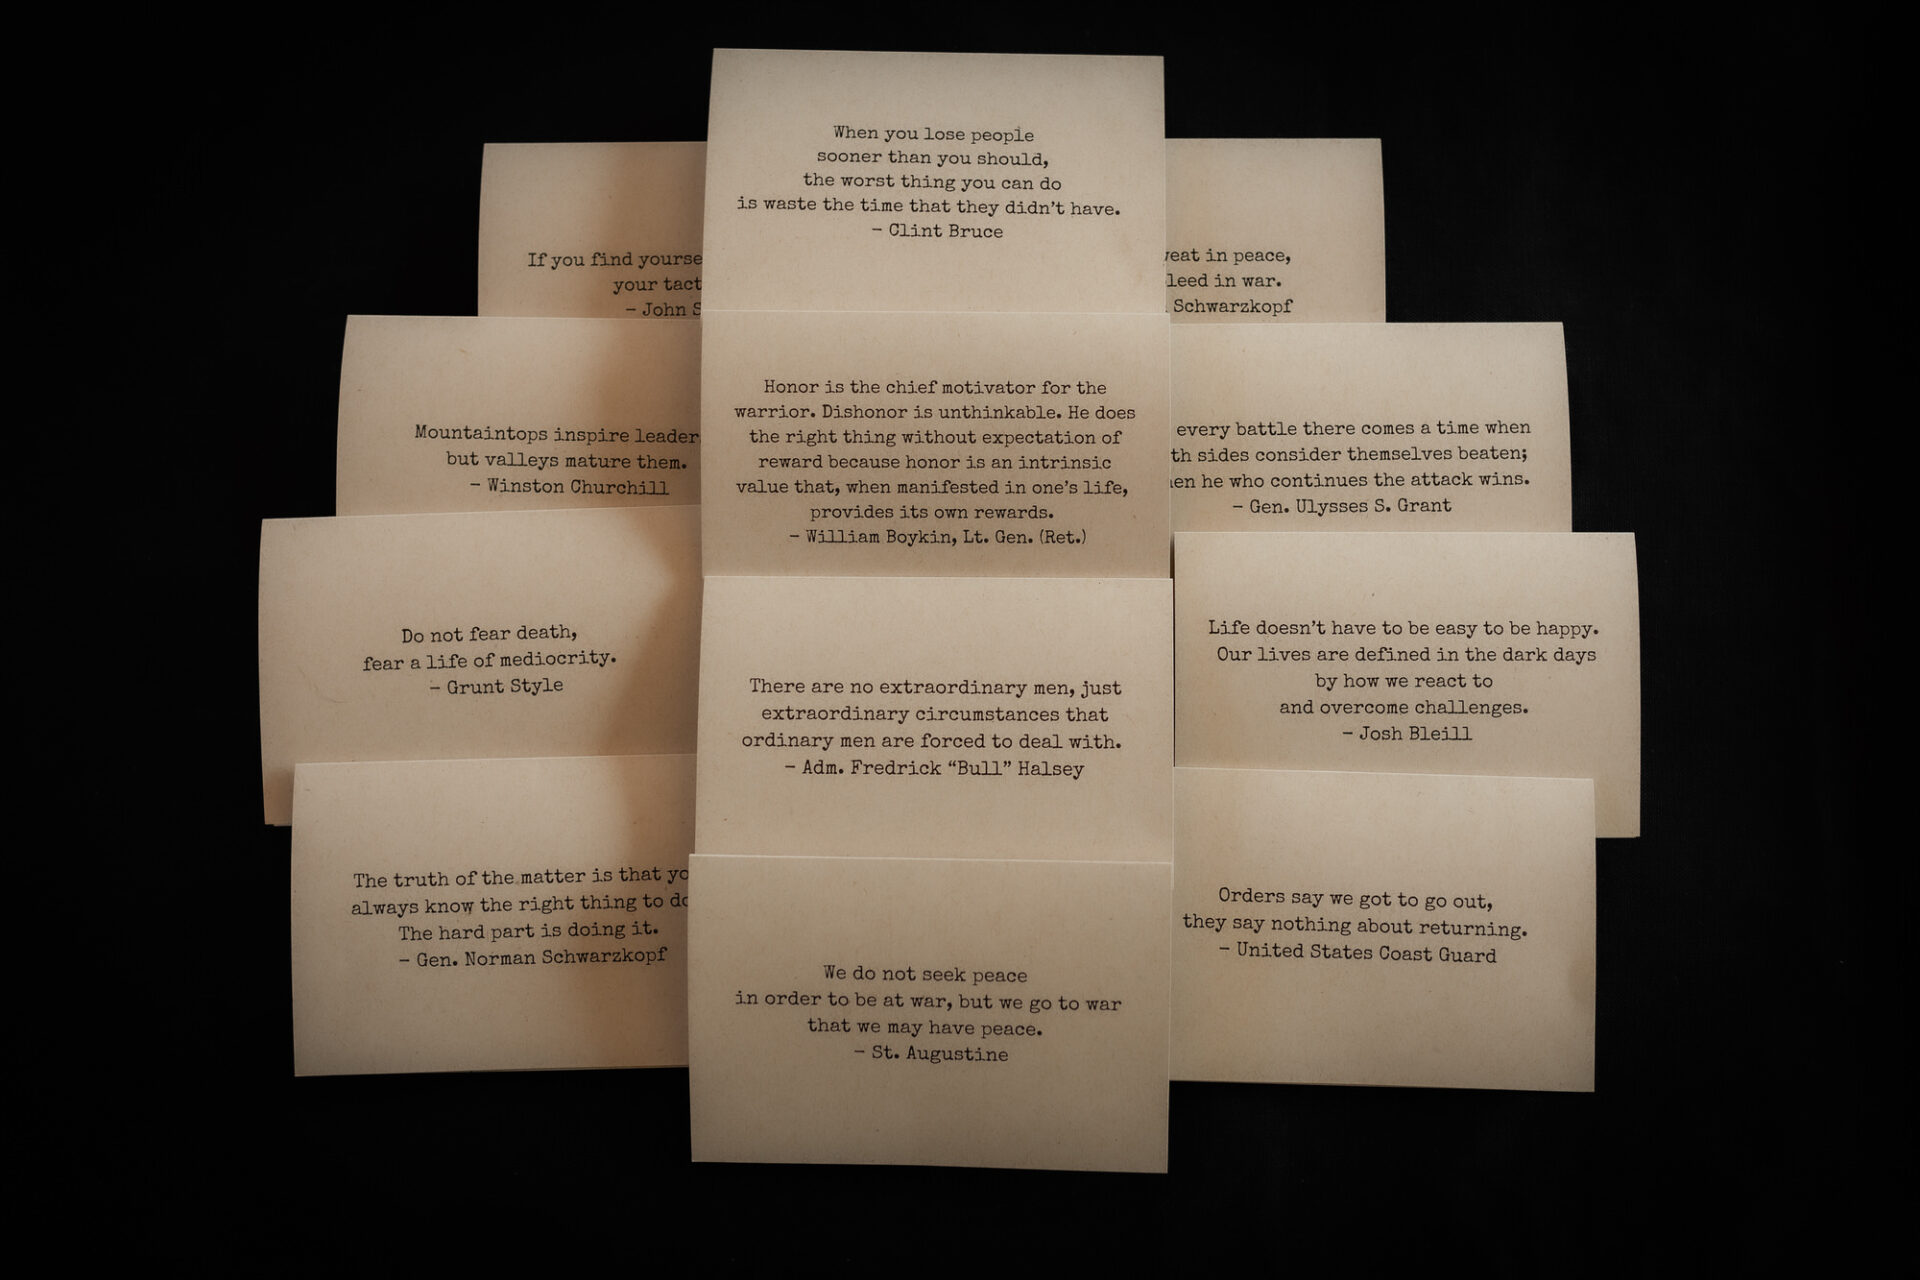 When you lose people
sooner than you should,
the worst thing you can do
is waste the time that they didn't have.
- Clint Bruce
If you find
your
- John
in peace,
in war.
Schwarzkopf
Honor is the chief motivator for the
warrior. Dishonor is unthinkable. He does
the right thing without expectation of
reward because honor is an intrinsic
value that, when manifested in one's life,
provides its own rewards.
- William Boykin, Lt. Gen. (Ret.)
Mountaintops inspire
but valleys mature them.
- Winston Churchill
every battle there comes a time when
sides consider themselves beaten;
he who continues the attack wins.
- Gen. Ulysses S. Grant
Do not fear death,
fear a life of mediocrity.
- Grunt Style
There are no extraordinary men, just
extraordinary circumstances that
ordinary men are forced to deal with.
- Adm. Fredrick “Bull” Halsey
Life doesn't have to be easy to be happy.
Our lives are defined in the dark days
by how we react to
and overcome challenges.
- Josh Bleill
The truth of the matter is that
always know the right thing to
The hard part is doing it.
- Gen. Norman Schwarzkopf
We do not seek peace
in order to be at war, but we go to war
that we may have peace.
- St. Augustine
Orders say we got to go out,
they say nothing about returning.
- United States Coast Guard